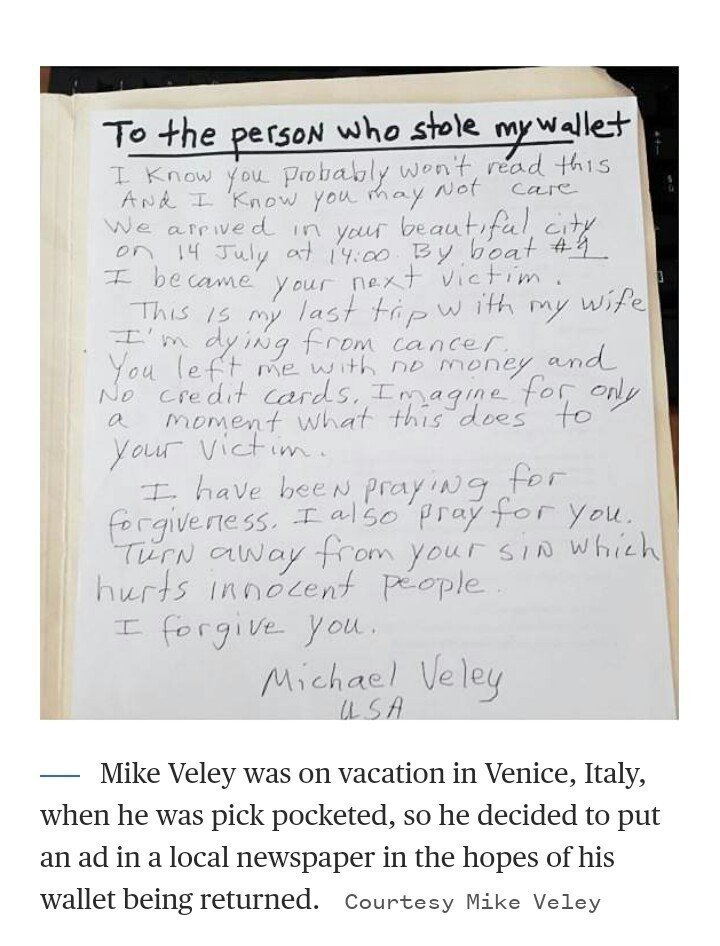 To the person who stole my wallet
I Know you Probably won't read this
And I Know you may Not care
We arrived in your beautiful city
on 14 July at 14:00. By boat #1
I became your next victim.
This is my last trip with my wife
I'm dying from cancer.
You left me with no money and
No credit cards. Imagine for only
a moment what this does to
your victim.
I have been praying for
forgiveness. I also pray for you.
Turn away from your sin which
hurts innocent people.
I forgive you.
Michael Veley
USA
Mike Veley was on vacation in Venice, Italy,
when he was pick pocketed, so he decided to put
an ad in a local newspaper in the hopes of his
wallet being returned. Courtesy Mike Veley